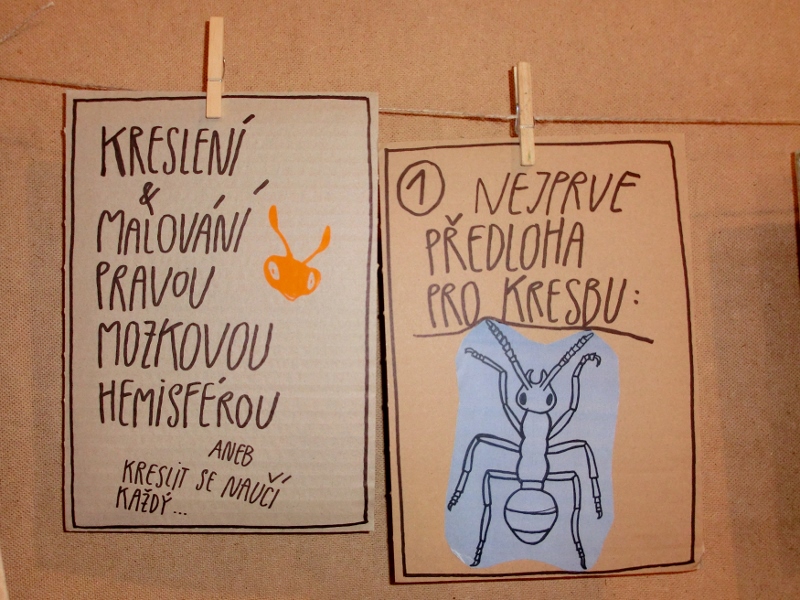 KRESLENÍ
&
MALOVÁNÍ
PRAVOU
MOZKOVOU
HEMISFÉROU
ANEB
KRESLIT SE NAUČÍ
KAŽDÝ...
1 NEJPRVE
PŘEDLOHA
PRO KRESBU: